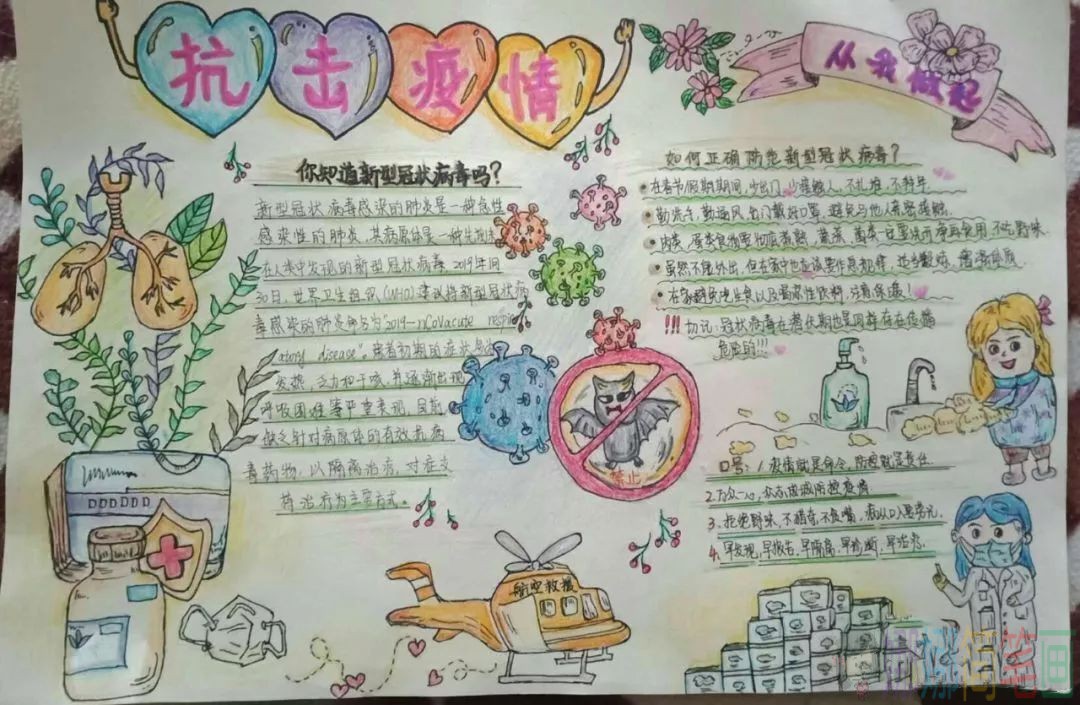 抗击疫情
从我做起
你知道新型冠状病毒吗?
新型冠状病毒感染的肺炎是一种急性
感染性的肺炎,其病原体是一种先前
在人类中发现的新型冠状病毒 2019年
30日,世界卫生组织(WHO)建议将新型冠状病
毒感染的肺炎命名为"2019-nCoVacute respir
atory disease".患者初期的症状
发热、乏力和干咳,并逐渐出现
呼吸困难等严重表现,目前
缺乏针对病原体的有效抗病
毒药物,以隔离治疗,对症支
持治疗为主要方式。
如何正确防范新型冠状病毒?
在春节假期期间,少出门,少接触人,不扎堆,不拜年
勤洗手,勤通风,出门戴好口罩,避免与他人亲密接触.
肉类、蛋类食物要彻底煮熟,蔬菜、菌类一定要洗干净再食用,不吃野味.
虽然不能外出,但在家中也应该要作息规律,适当锻炼,增强体质.
在家避免吃生食以及冒凉性饮料,注意保温!
!!! 切记:冠状病毒在潜伏期也是同样存在传播
危险的!!!
口号:1.疫情就是命令,防控就是责任.
2.万众一心,众志成城防控疫情.
3、拒绝野味,不猎奇,不贪嘴,病从口入恶旁元.
4.早发现,早报告,早隔离,早诊断,早治疗.
禁止
航空救援
DDDDDD